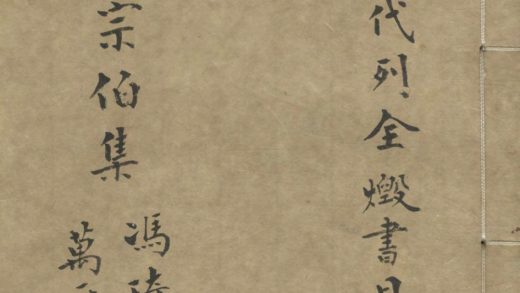 代列全燬書目
宗伯集
馮琦
萬